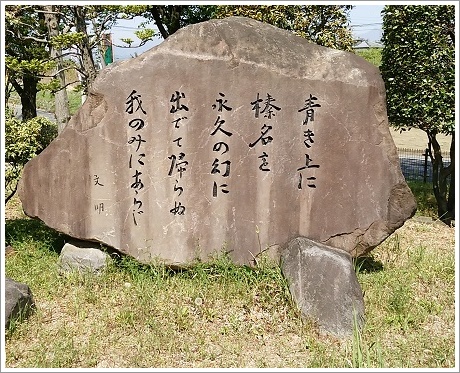 青き上に
榛名を
永久の幻に
出でて帰らぬ
我のみにあらじ
文明